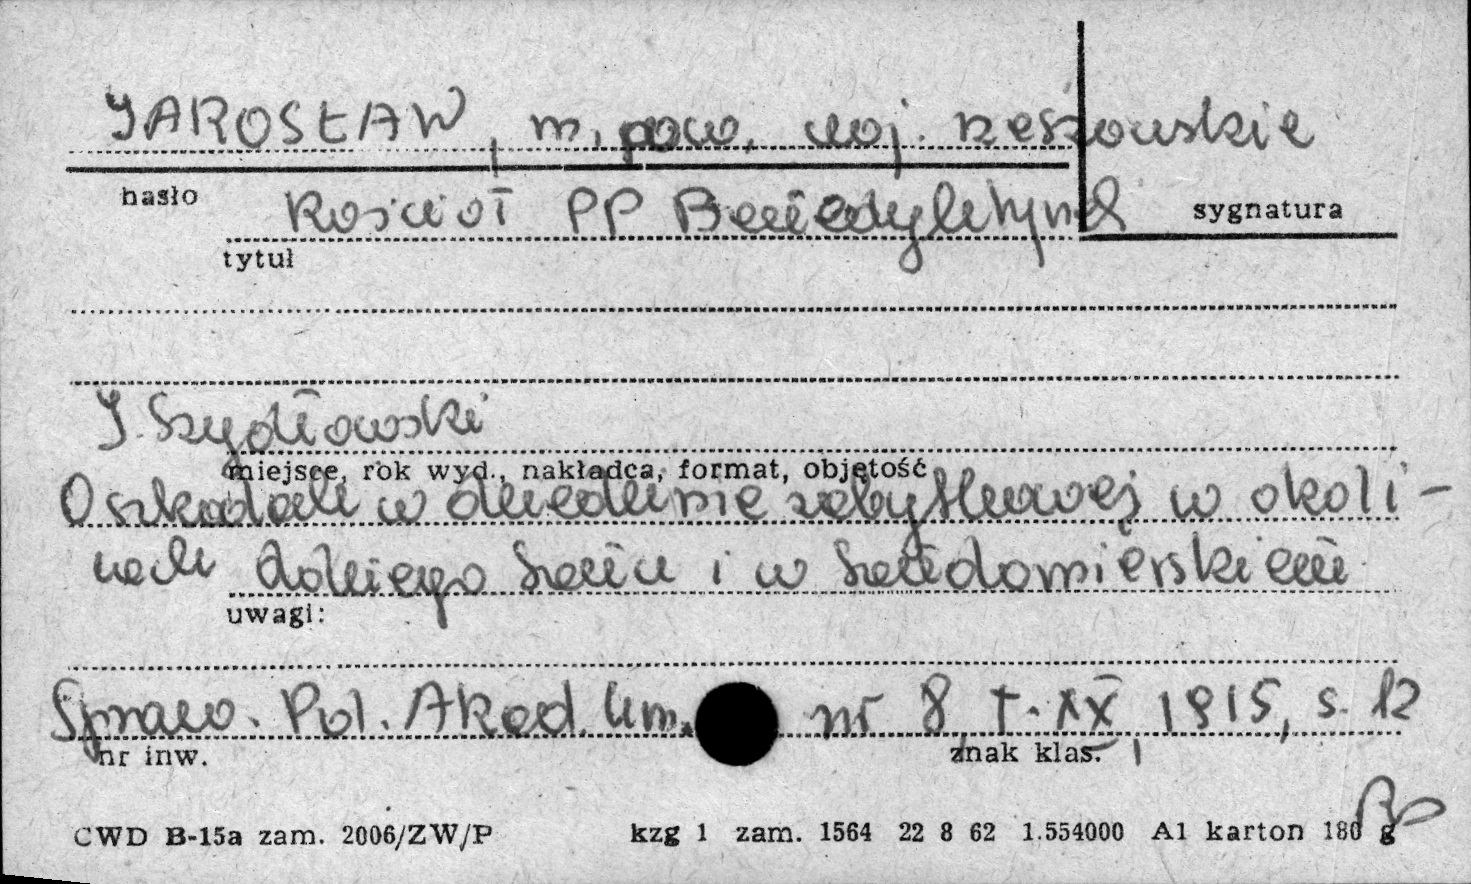 JAROSŁAW, m. pow. woj. rzeszowskie
hasło
sygnatura
Kościół PP Benedyktynek
tytuł
J. Szydłowski
miejsce, rok wyd., nakładca, format, objętość
O szkodach w dziedzinie zabytkowej w okoli-
cach dolnego Sanu i w Sandomierskiem
uwagi:
Spraw. Pol. Akad. Um. nr 8 t. XX 1915, s. 12
nr inw.
znak klas.
CWD B-15a zam. 2006/ZW/P kzg 1 zam. 1564 22 8 62 1.554000 A1 karton 180 g